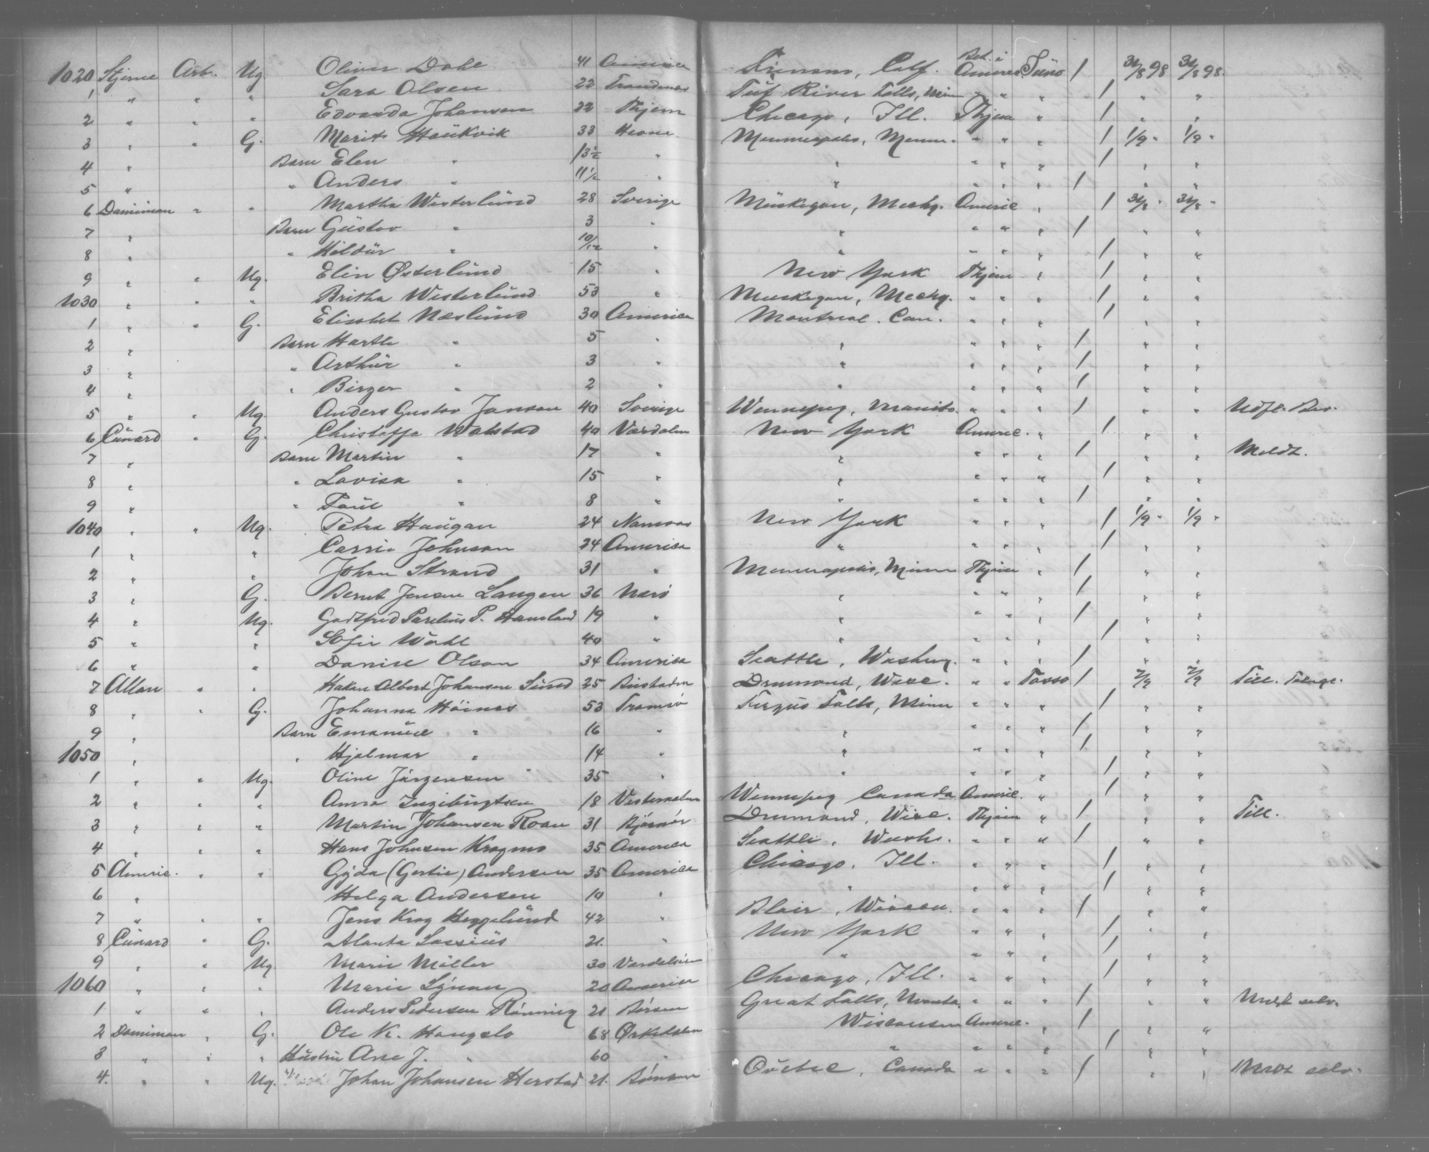 1020 Stjerne Arb. Ug Oliver Dahl 41 America Fresno, Calf. Bet. i Americ Juno 1 31/8 98 31/8 98
1 " " " Sara Olsen 22 Trondenes Teif River Falls, Minn " " " 1 " "
2 " " " Edvarda Johansen 22 Chicago, Ill. Hjem " 1 " "
3 " " G. Marit Haukvik 33 Minneapolis, Minn. " " " 1 1/9 - 1/9 -
4 " Barn Elen " 13½ " " " " " 1 " "
5 " " Anders " 11½ " " " " " 1 " "
6 Dominion " " Martha Westerlund 28 Sverige Muskegon, Mechg. Americ " 1 31/8 - 31/8 -
7 " Barn Gustav " 3 " " " " " 1 " "
8 " " Hildur " 10/12 " " " " " 1 " "
9 " " Ug. Elin Østerlund 15 " New York Hjem " 1 " "
1030 " " " Britha Westerlund 53 " Muskegon, Mechg. " " " 1 " "
1 " " G. Elisabet Næslund 30 America Montreal. Can. " " " 1 " "
2 " Barn Harthe " 5 " " " " " 1 " "
3 " " Arthur " 3 " " " " " 1 " "
4 " " Birger " 2 " " " " " 1 " "
5 " " Ug. Anders Gustav Janson 40 Sverige Winnepeg, Manito. " " " 1 " "
6 Cunard " G. Christoffa Walstad 40 Værdalen New York Americ. " 1 " "
7 " Barn Martin " 17 " " " " " 1 " " Meldt.
8 " " Lovisa " 15 " " " " " 1 " "
9 " " Paul " 8 " " " " " 1 " "
1040 " " Ug. Petra Haugan 24 Namsos New York " " " 1 1/9 - 1/9 -
1 " " Carrie Johnson 24 America " " " " 1 " "
2 " " Johan Strand 31 " Minneapolis, Minn Hjem " 1 " "
3 " G. Bernt Jensen Langen 36 Nærø " " " " 1 " "
4 " Ug. Godtfred Parelius P. 19 " " " " " 1 " "
5 " " Sofie Wahl 40 " " " " " 1 " "
6 " " Danise Olson 34 America Seattle, Washing. " " " 1 " "
7 Allan " " Haken Albert Johansen Sund 25 Drumond, Wisc. " " Tasso 1 2/9 2/9 Till.
8 " " G. Johanna Höines 53 Tromsø Fergus Falls, Minn " " " 1 " "
9 " Barn Emanuel " 16 " " " " " 1 " "
1050 " " Hjelmar " 14 " " " " " 1 " "
1 " " Ug. Oline Jørgensen 35 " " " " " 1 " "
2 " " " Anna Ingeburgtsen 18 Winnepeg Canada Americ. " 1 " "
3 " " " Martin Johansen Roan 31 Bjørnør Drumond, Wisc. Hjem " 1 " " Till.
4 " " " Hans Johnsen Krogmo 35 America Seattle, Wash. " " " 1 " "
5 Americ. " " Gyda (Gertie) Andersen 35 America Chicago, Ill. " " " 1 " "
6 " Helga Andersen 10 " " " " " 1 " "
7 " " " Jens Krog Heggelund 42 " Blair, Wiscon. " " " 1 " "
8 Cunard " G. 21 " New York " " " 1 " "
9 " " Ug Marie Miller 30 Værdalen " " " " 1 " "
1060 " " " Marie 20 America Chicago, Ill. " " " 1 " "
1 " " " Anders Pedersen Rønning 21 Børsen Great Falls, Monta. " " " 1 " " Meldt selv.
2 Dominion " G. Ole K. Haugslo 68 Ørkedalen Wisconsin Americ. " 1 " "
3 " " " Hustru Ane J. " 60 " " " " " 1 " "
4. " " Ug. Johan Johansen Herstad 21 Qvebec, Canada " " " 1 " " Meldt selv.